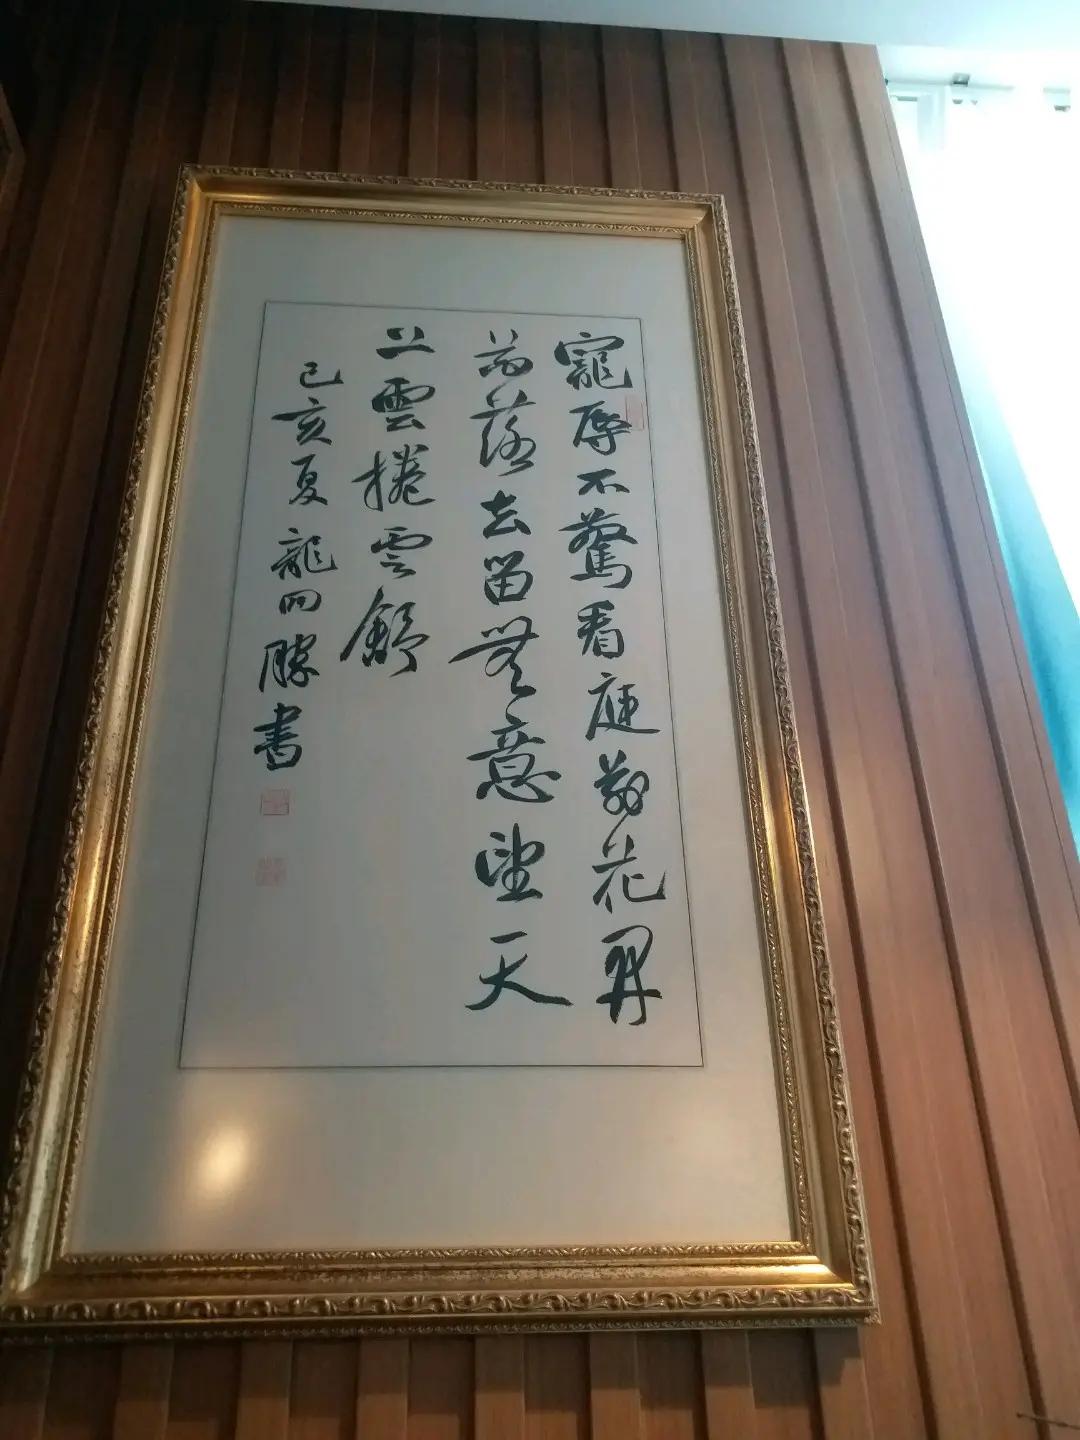 寵辱不驚看庭前花開
花落去留無意望天
上雲捲雲舒
己亥夏龍四勝書